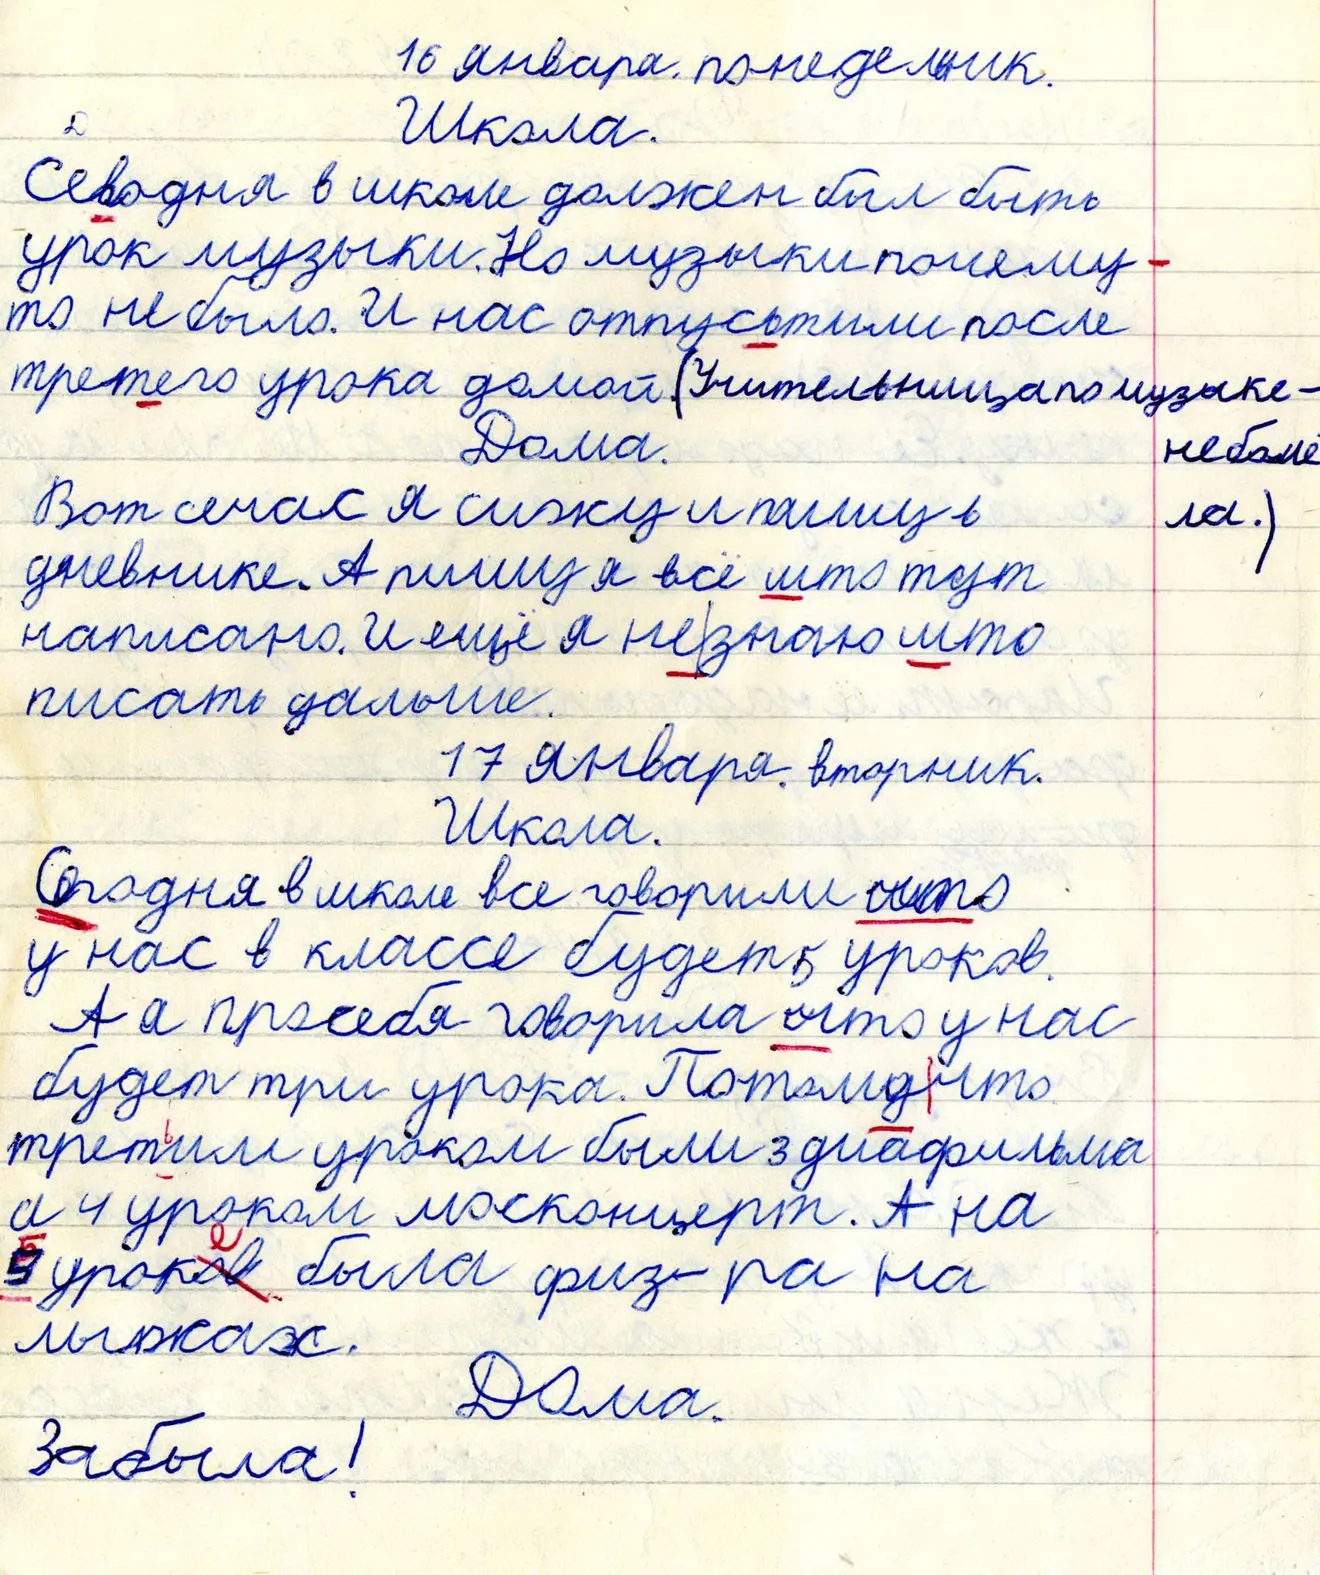 16 января. понедельник.
Школа.
Севодня в школе должен был быть
урок музыки. Но музыки почему-
то не было. И нас отпусьтили после
третего урока домой. (Учительница по музыке-
Дома.
не боле
Вот сечас я сижу и пишу в
ла.)
дневнике. А пишу я всё што тут
написано. И ещё я не|знаю што
писать дальше.
17 января. вторник.
Школа.
Сегодня в школе все говорили што
у нас в классе будет 5 уроков.
А я просебя говорила што у нас
будет три урока. Потому|что
третьим уроком были 3 диафильма
а 4 уроком москонцерт. А на
5 уроке была физ-ра на
лыжах.
Дома.
Забыла!